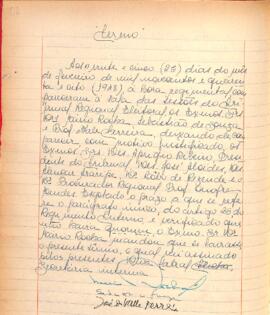 Termo
Aos vinte e cinco (25) dias do mês
de fevereiro de mil novecentos e quaren-
ta e oito (1948), à hora regimental, com-
pareceram à sala das sessões do Tri-
bunal Regional Eleitoral os Exmos. Srs.
Des. Mário Rocha, Sebastião de Souza
e Prof. Valle Ferreira, deixando de com-
parecer com justiva justificado, os
Exmos. Srs. Des. Aprigio Ribeiro, Presi-
dente do Tribunal, José Alcides
Des. Leão de Rezende e o
Dr. Procurador Regional, Prof. Onofre
Mendes. Esgotado o prazo a que se refe-
re o parágrafo único, do artigo 20 do
Regimento Interno e verificado que
não havia quorum, o Exmo. Sr. Des.
Mário Rocha mandou que se lavrasse
o presente termo, o qual vai assinado
pelos presentes
Secretária interina
José do Valle Ferreira